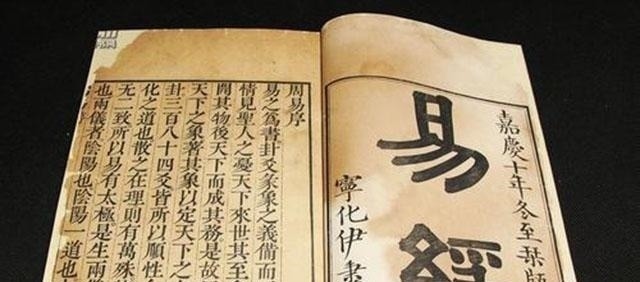 嘉慶十年冬至栞版
易經
寧化伊
周易序
易之爲書卦爻彖象之義備而
情見聖人之憂天下來世其至
開其物後天下而成其務是故
天下之象著其象以定天下之
卦三百八十四爻皆所以順性
化之道也散之在理則有萬殊
无二致所以易有太極是生兩
也兩儀者陰陽也陰陽一道也